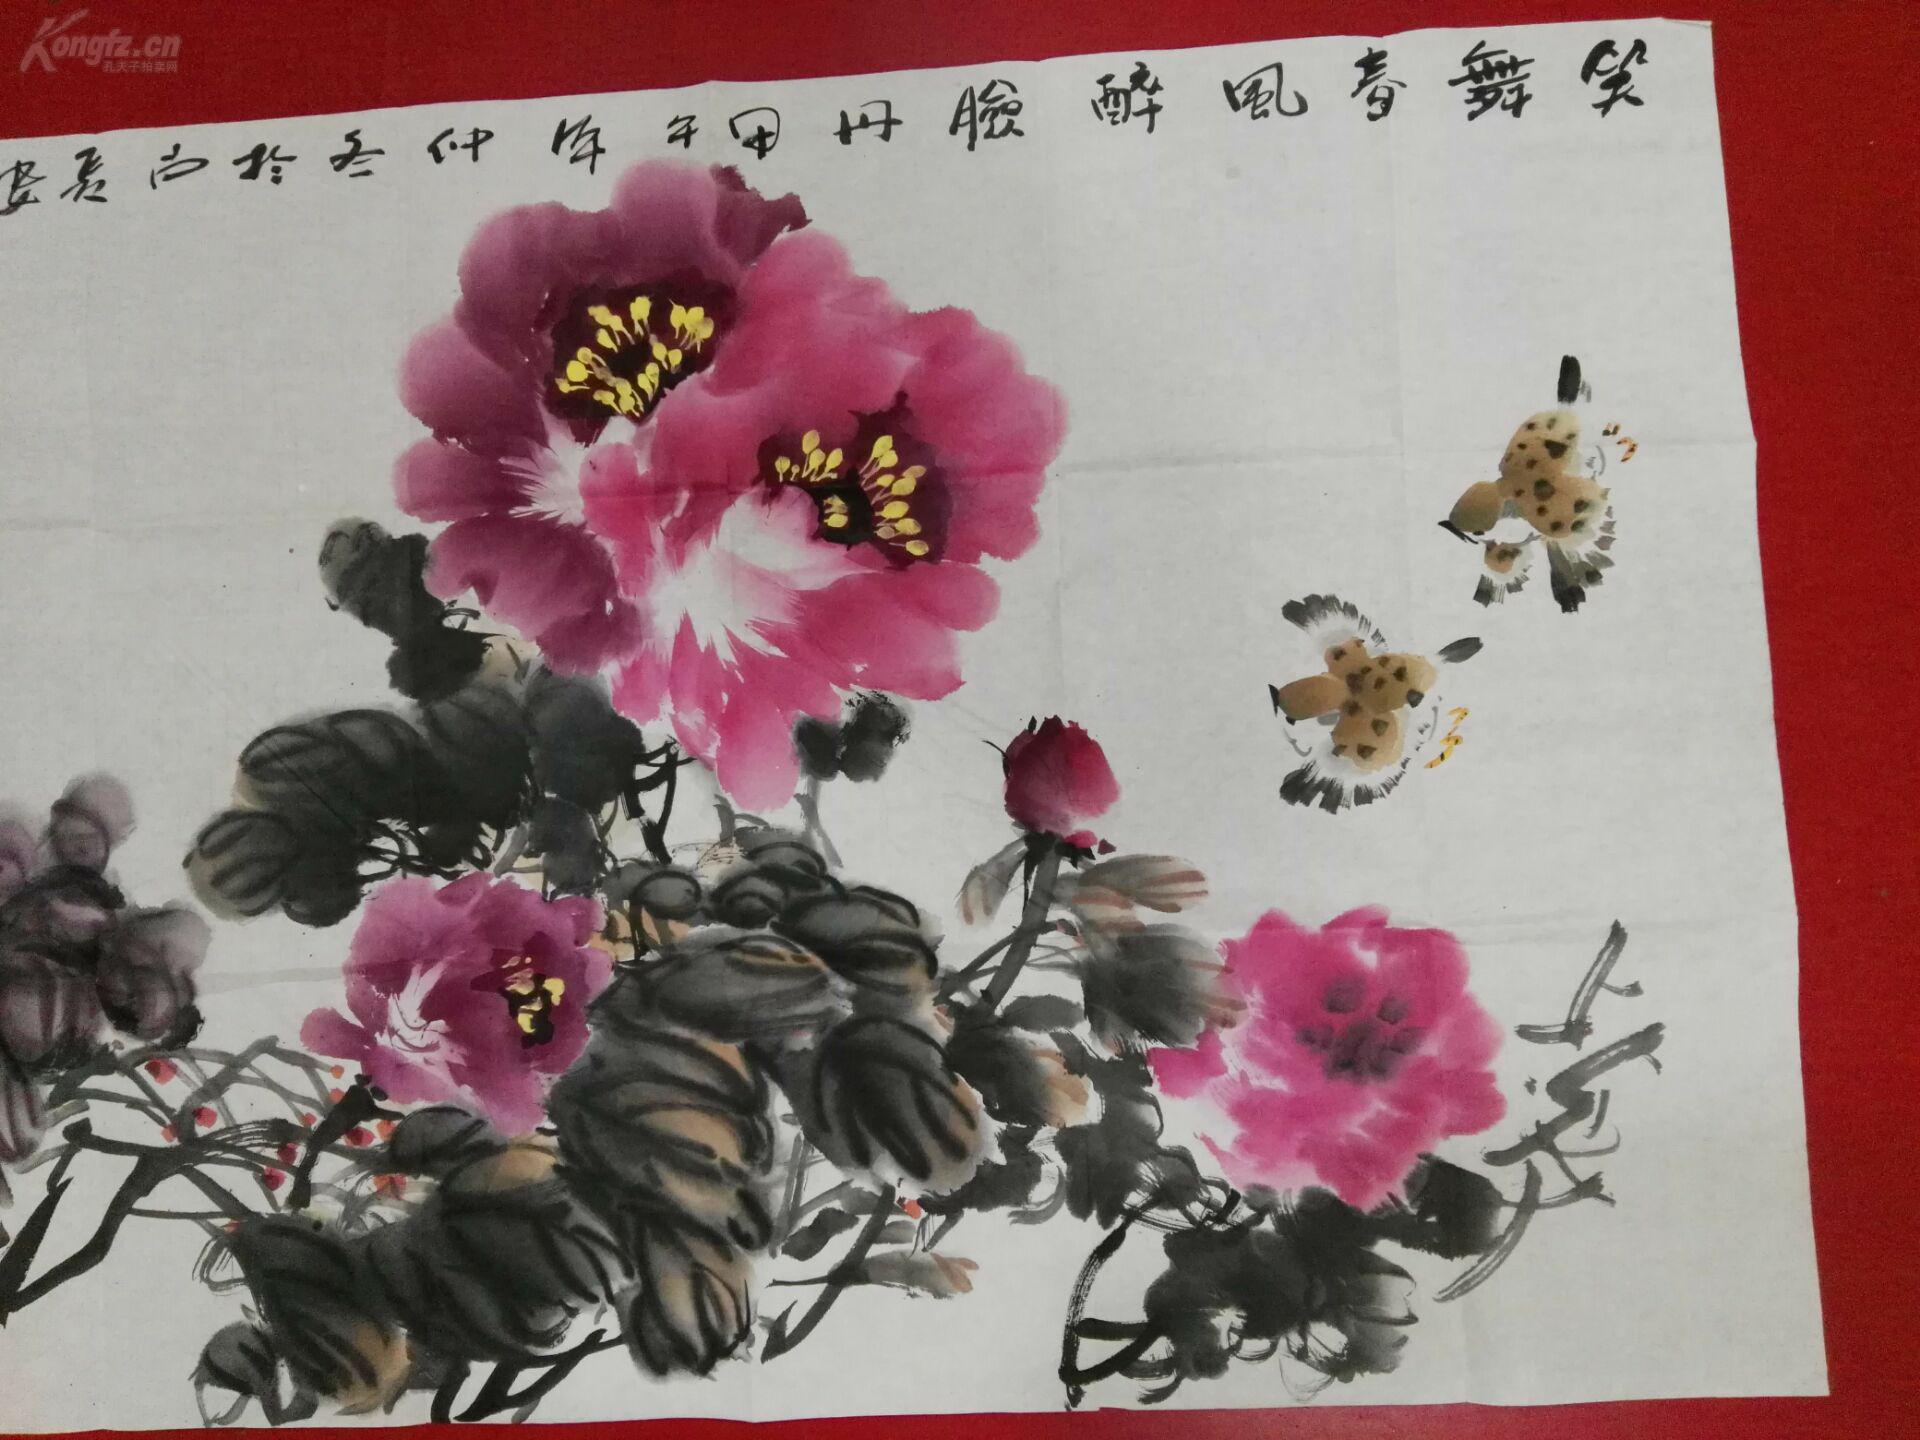 Kongfz.cn
孔夫子拍卖网
笑舞春風醉臉丹甲午年仲冬於西長安